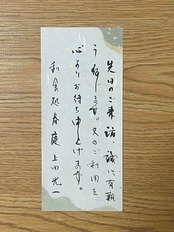 先日のご来訪、誠に有難
う御座います。又のご利用を
心よりお待ち申し上げます。
和食処 春庭 上田光一